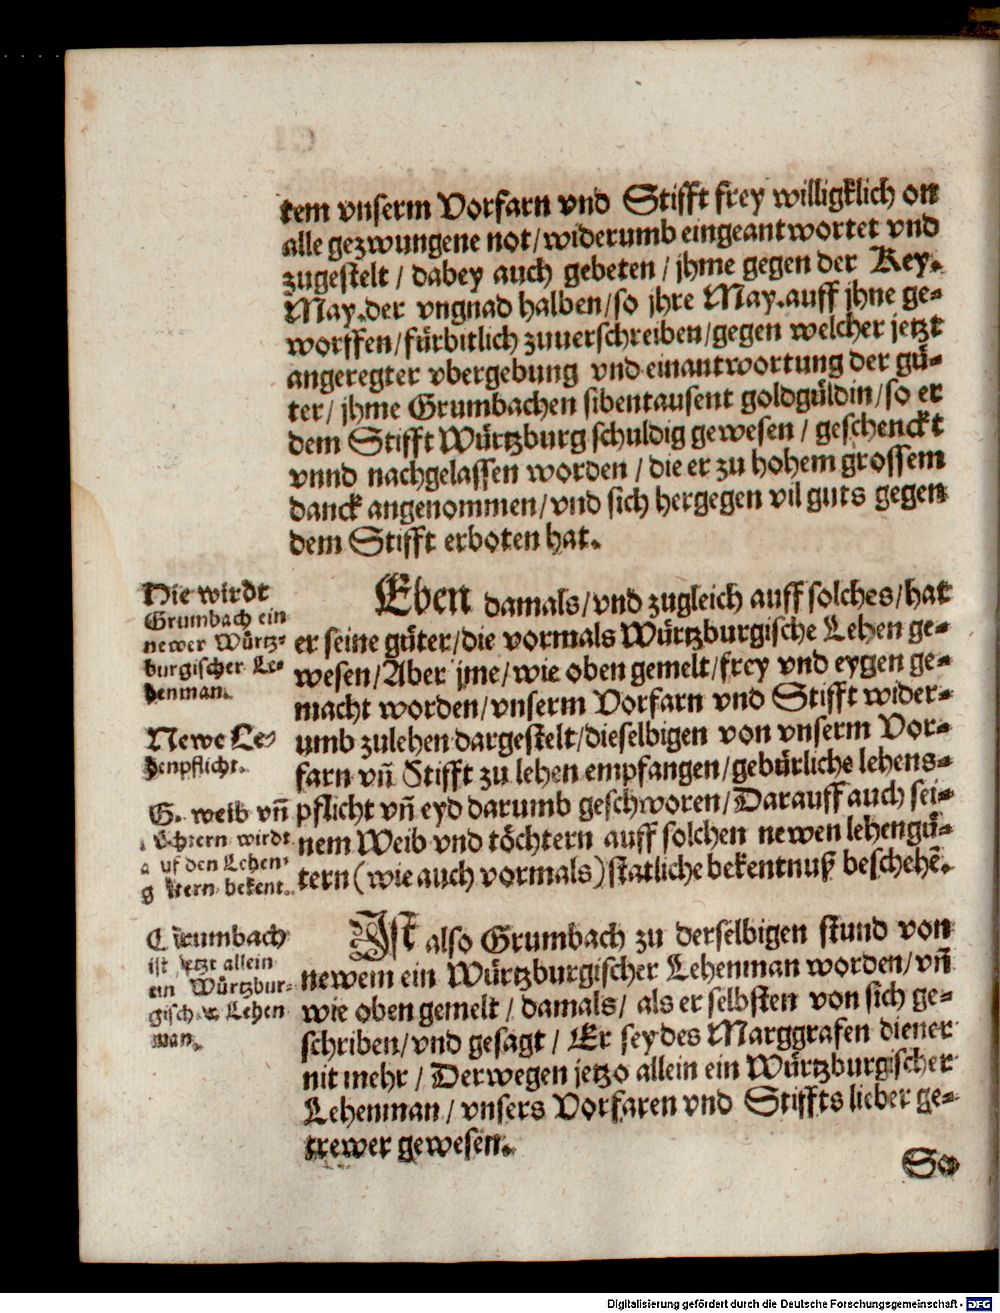 tem vnserm Vorfarn vnd Stifft frey willigklich on
alle gezwungene not/widerumb eingeantwortet vnd
zugestelt / dabey auch gebeten / jhme gegen der Key.
May.der vngnad halben/so jhre May.auff jhne ge-
worffen/fürbitlich zuuerschreiben/gegen welcher jetzt
angeregter vbergebung vnd einantwortung der gü-
ter/ jhme Grumbachen sibentausent goldgüldin/so er
dem Stifft Würtzburg schuldig gewesen / geschenckt
vnnd nachgelassen worden / die er zu hohem grossem
danck angenommen/vnd sich hergegen vil guts gegen
dem Stifft erboten hat.
Hie wirdt
Grumbach ein
newer Würtz-
burgischer Le-
henman.
Eben damals/vnd zugleich auff solches/hat
er seine güter/die vormals Würtzburgische Lehen ge-
wesen/Aber jme/wie oben gemelt/frey vnd eygen ge-
macht worden/vnserm Vorfarn vnd Stifft wider-
umb zulehen dargestelt/dieselbigen von vnserm Vor-
farn vñ Stifft zu lehen empfangen/gebürliche lehens-
pflicht vñ eyd darumb geschworen/Darauff auch sei-
nem Weib vnd töchtern auff solchen newen lehengü-
tern (wie auch vormals) statliche bekentnuß beschehẽ.
Newe Le-
henpflicht.
G. weib vñ
töchtern wirdt
auf den Lehen-
gütern bekent.
Ist also Grumbach zu derselbigen stund von
newem ein Würtzburgischer Lehenman worden/vñ
wie oben gemelt / damals/ als er selbsten von sich ge-
schriben/vnd gesagt / Er sey des Marggrafen diener
nit mehr / Derwegen jetzo allein ein Würtzburgischer
Lehenman / vnsers Vorfaren vnd Stiffts lieber ge-
trewer gewesen.
Grumbach
ist jetzt allein
ein Würtzbur-
gischer Lehen
man.
So
Digitalisierung gefördert durch die Deutsche Forschungsgemeinschaft - DFG